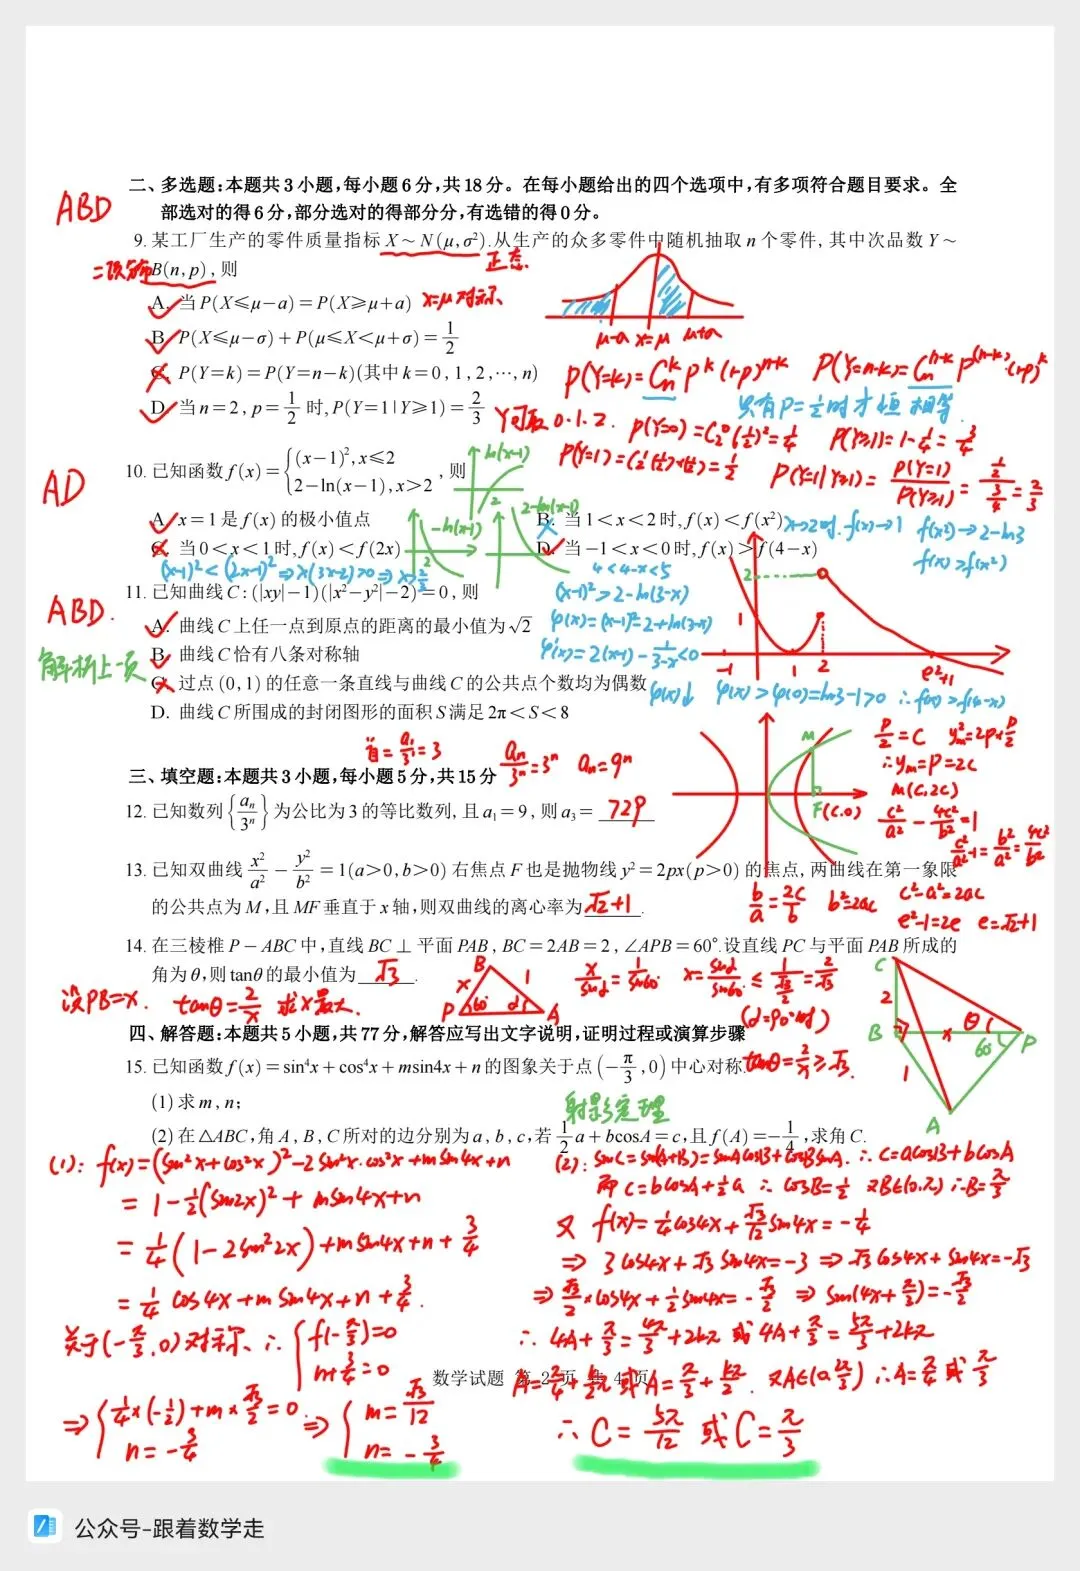 二、多选题:本题共3小题,每小题6分,共18分。在每小题给出的四个选项中,有多项符合题目要求。全
部选对的得6分,部分选对的得部分分,有选错的得0分。
ABD
9. 某工厂生产的零件质量指标 X~N(μ,σ²).从生产的众多零件中随机抽取 n 个零件, 其中次品数 Y~
正态
二项分布 B(n,p),则
A. 当P(X≤μ-a)=P(X≥μ+a) x=μ对称
B. P(X≤μ-σ)+P(μ≤X<μ+σ)=1/2
μ-a x=μ μ+a
C. P(Y=k)=P(Y=n-k)(其中k=0,1,2,…,n)
P(Y=k)=C_n^k p^k (1-p)^{n-k} P(Y=n-k)=C_n^{n-k} p^{(n-k)} (1-p)^k
只有P=1/2时才恒相等.
D. 当n=2,p=1/2时,P(Y=1|Y≥1)=2/3
Y可取0.1.2. P(Y=0)=C_2^0(1/2)²=1/4 P(Y≥1)=1-1/4=3/4
P(Y=1)=C_2^1(1/2)×(1/2)=1/2 P(Y=1|Y≥1)=P(Y=1)/P(Y≥1)=(1/2)/(3/4)=2/3
AD
10. 已知函数 f(x)={(x-1)²,x≤2
2-ln(x-1),x>2 ,则
ln(x-1)
-ln(x-1)
2-ln(x-1)
A. x=1是f(x)的极小值点
B. 当1<x<2时,f(x)<f(x²) x→2时.f(x)→1 f(x²)→2-ln3
f(x)>f(x²)
C. 当0<x<1时,f(x)<f(2x)
(x-1)²<(2x-1)²⇒x(3x-2)>0⇒x>2/3
D. 当-1<x<0时,f(x)>f(4-x)
4<4-x<5
(x-1)²>2-ln(3-x)
φ(x)=(x-1)²-2+ln(3-x)
φ'(x)=2(x-1)-1/(3-x)<0
φ(x)↓ φ(x)>φ(0)=ln3-1>0 ∴f(x)>f(4-x)
2
1
-1 1 2 e²+1
ABD.
11. 已知曲线C:(|xy|-1)(|x²-y²|-2)=0,则
A. 曲线C上任一点到原点的距离的最小值为√2
解析上一页
B. 曲线C恰有八条对称轴
C. 过点(0,1)的任意一条直线与曲线C的公共点个数均为偶数
D. 曲线C所围成的封闭图形的面积S满足2π<S<8
首=a₁/3¹=3 a_n/3^n=3^n a_n=9^n
三、填空题:本题共3小题,每小题5分,共15分
12. 已知数列{a_n/3^n}为公比为3的等比数列,且a₁=9,则a₃=729
M
F(c,0)
p/2=c y_M²=2p×p/2
∴y_M=p=2c
M(c,2c)
c²/a²-4c²/b²=1
c²/a²-1=b²/a²=4c²/b²
13. 已知双曲线 x²/a²-y²/b²=1(a>0,b>0)右焦点F也是抛物线y²=2px(p>0)的焦点,两曲线在第一象限
的公共点为M,且MF垂直于x轴,则双曲线的离心率为 √2+1 .
b/a=2c/b b²=2ac c²-a²=2ac
e²-1=2e e=√2+1
14. 在三棱椎P-ABC中,直线BC⊥平面PAB,BC=2AB=2,∠APB=60°.设直线PC与平面PAB所成的
角为θ,则tanθ的最小值为 √3 .
设PB=x. tanθ=2/x 求x最大.
B x 1 P 60° α A
x/sinα=1/sin60° x=sinα/sin60°≤1/(√3/2)=2/√3
(α=90°时)
tanθ=2/x≥√3.
C 2 B x θ 60° P 1 A
四、解答题:本题共5小题,共77分,解答应写出文字说明,证明过程或演算步骤
15. 已知函数f(x)=sin⁴x+cos⁴x+msin4x+n的图象关于点(-π/3,0)中心对称.
(1)求m,n;
射影定理
(2)在△ABC,角A,B,C所对的边分别为a,b,c,若1/2a+bcosA=c,且f(A)=-1/4,求角C.
(1): f(x)=(sin²x+cos²x)²-2sin²x·cos²x+msin4x+n
=1-1/2(sin2x)²+msin4x+n
=1/4(1-2sin²2x)+msin4x+n+3/4
=1/4cos4x+msin4x+n+3/4.
关于(-π/3,0)对称、∴{f(-π/3)=0
n+3/4=0
⇒{1/4×(-1/2)+m×√3/2=0
n=-3/4
⇒{m=√3/12
n=-3/4
(2): sinC=sin(A+B)=sinAcosB+cosBsinA. ∴c=acosB+bcosA
而c=bcosA+1/2a ∴cosB=1/2 又B∈(0,π)∴B=π/3
又 f(x)=1/4cos4x+√3/12sin4x=-1/4
⇒3cos4x+√3sin4x=-3⇒√3cos4x+sin4x=-√3
⇒√3/2×cos4x+1/2sin4x=-√3/2⇒sin(4x+π/3)=-√3/2
∴4A+π/3=4π/3+2kπ或4A+π/3=5π/3+2kπ
A=π/4+k/2π或A=π/3+kπ/2. 又A∈(0,2π/3)∴A=π/4或π/3
∴C=5π/12或C=π/3
数学试题 第2页 共4页
公众号-跟着数学走